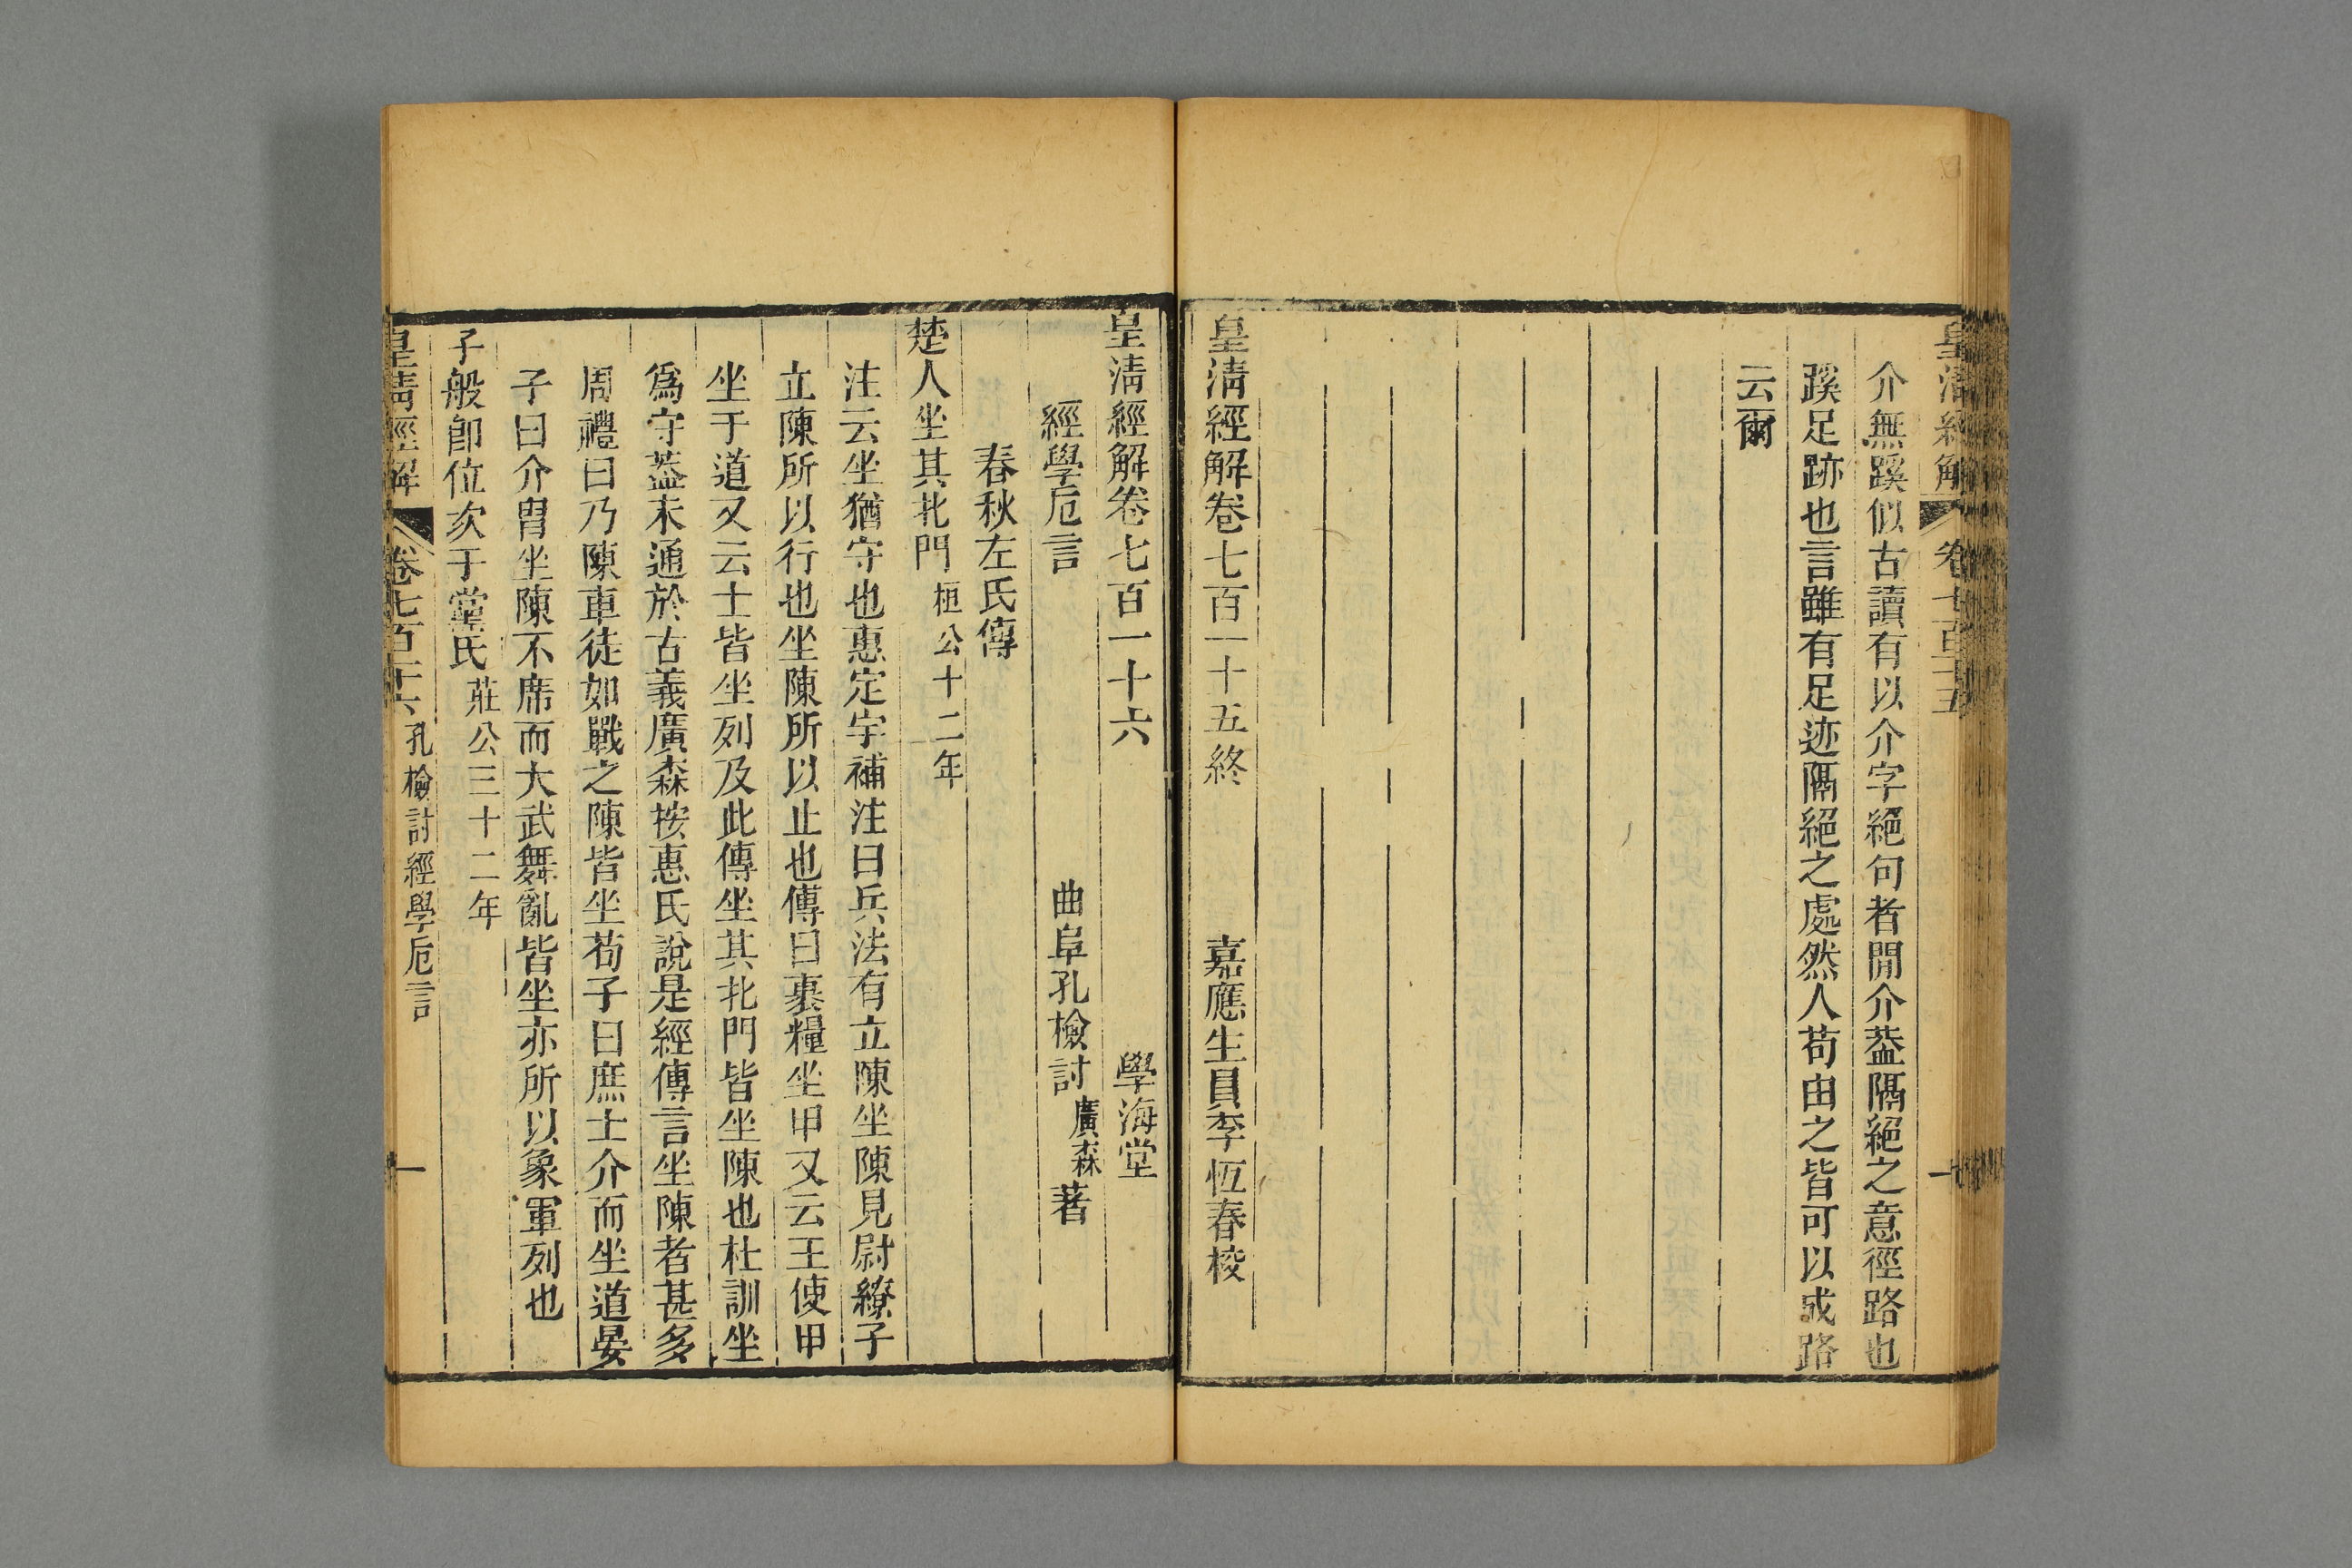 皇清經解
卷七百十五
十
介無蹊似古讀有以介字絕句者閒介葢隔絕之意徑路也
蹊足跡也言雖有足迹隔絕之處然人苟由之皆可以成路
云爾
皇清經解卷七百一十五終
嘉應生員李恆春校
皇清經解卷七百一十六
學海堂
經學卮言
曲阜孔檢討廣森著
春秋左氏傳
楚人坐其北門桓公十二年
注云坐猶守也惠定宇補注曰兵法有立陳坐陳見尉繚子
立陳所以行也坐陳所以止也傳曰裹糧坐甲又云王使甲
坐于道又云士皆坐列及此傳坐其北門皆坐陳也杜訓坐
爲守葢未通於古義廣森按惠氏說是經傳言坐陳者甚多
周禮曰乃陳車徒如戰之陳皆坐荀子曰庶士介而坐道晏
子曰介冑坐陳不席而大武舞亂皆坐亦所以象軍列也
子般卽位次于黨氏莊公三十二年
皇清經解
卷七百十六
孔檢討經學卮言
一